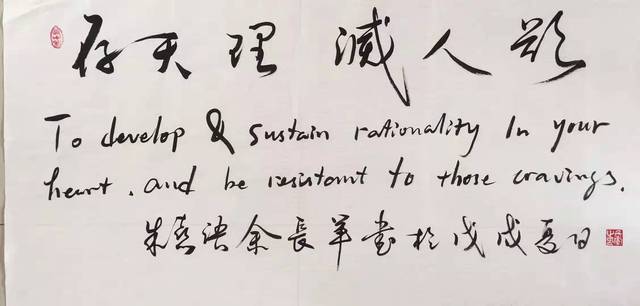 存天理 滅人欲
To develop & sustain rationality In your
heart, and be resistant to those cravings.
朱熹语余長羊書於戊戌夏日